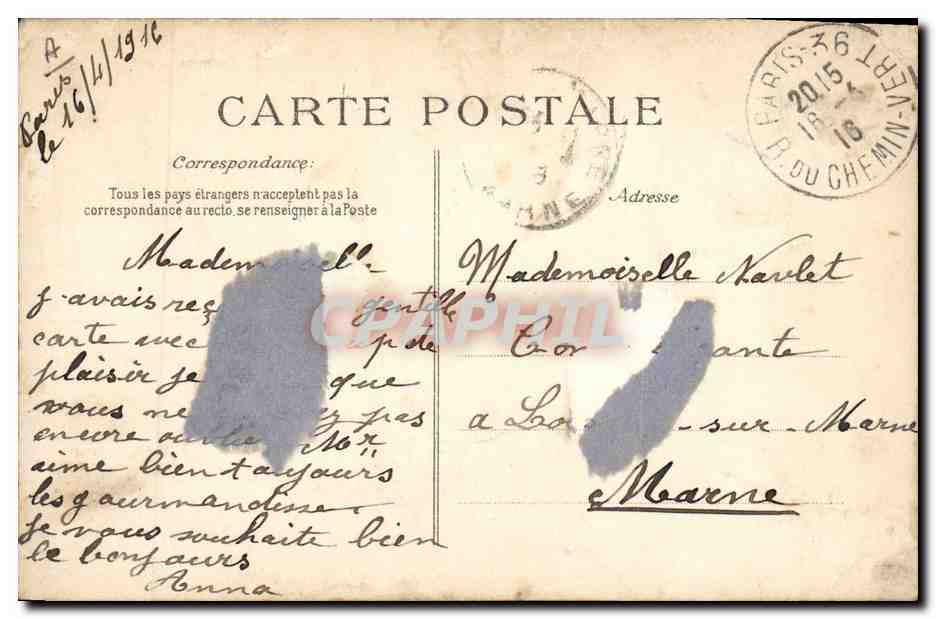 A
Paris
le 16/4/1916
CARTE POSTALE
PARIS-36
R. DU CHEMIN-VERT
20 15
16
MARNE
Correspondance:
Adresse
Tous les pays étrangers n'acceptent pas la
correspondance au recto, se renseigner à la Poste
Mademoiselle
j'avais reç gentille
carte avec
plaisir je que
vous ne pas
encore Mr
aime bien toujours
les gourmandisse
je vous souhaite bien
le bonjours
Anna
Mademoiselle Navlet
a sur-Marne
Marne
CPAPHIL